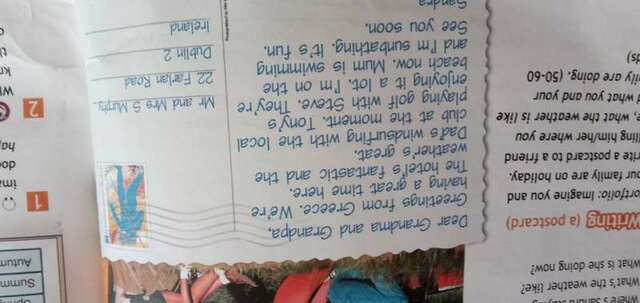 Sandra
the weather like?
What is she doing now?
Writing (a postcard)
Portfolio: Imagine you and
your family are on holiday.
postcard to a friend
him/her where you
what the weather is like
and what you and your
are doing. (50-60
Dear Grandma and Grandpa,
Greetings from Greece. We're
having a great time here.
The hotel's fantastic and the
weather's great.
Dad's windsurfing with the local
club at the moment. Tony's
playing golf with Steve. They're
enjoying it a lot. I'm on the
beach now. Mum is swimming
and I'm sunbathing. It's fun.
See you soon.
Sandra
Mr and Mrs S Murphy,
22 Farlan Road
Dublin 2
Ireland
1
2